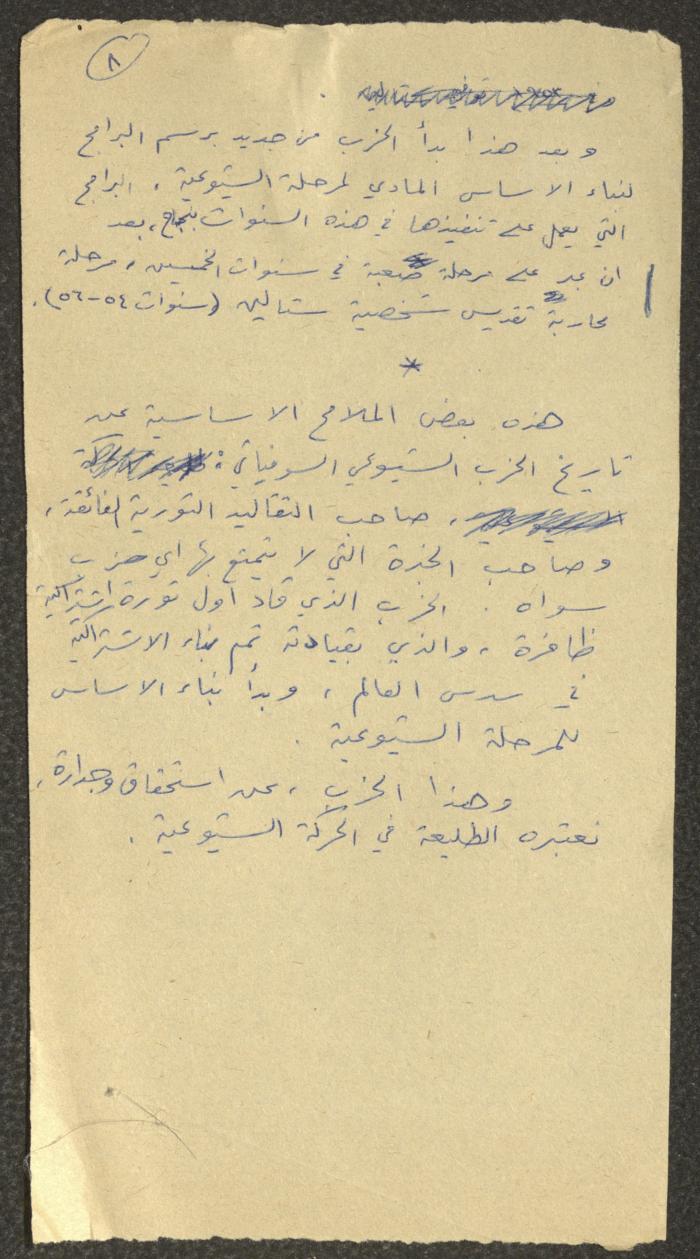 ٨
وبعد هذا بدأ الحزب من جديد برسم البرامج
لبناء الاساس المادي لمرحلة الشيوعية ، البرامج
التي يعمل على تنفيذها في هذه السنوات بنجاح ، بعد
ان عبر على مرحلة صعبة في سنوات الخمسين ، مرحلة
محاربة تقديس شخصية ستالين (سنوات ٥٤-٥٦) .
*
هذه بعض الملامح الاساسية عن
تاريخ الحزب الشيوعي السوفياتي :
، صاحب التقاليد الثورية الفائقة ،
وصاحب الخبرة التي لا يتمتع بها اي حزب
سواه . الحزب الذي قاد اول ثورة اشتراكية
ظافرة ، والذي بقيادته تم بناء الاشتراكية
في سدس العالم ، وبدأ بناء الاساس
للمرحلة الشيوعية .
وهذا الحزب ، عن استحقاق وجدارة ،
نعتبره الطليعة في الحركة الشيوعية .